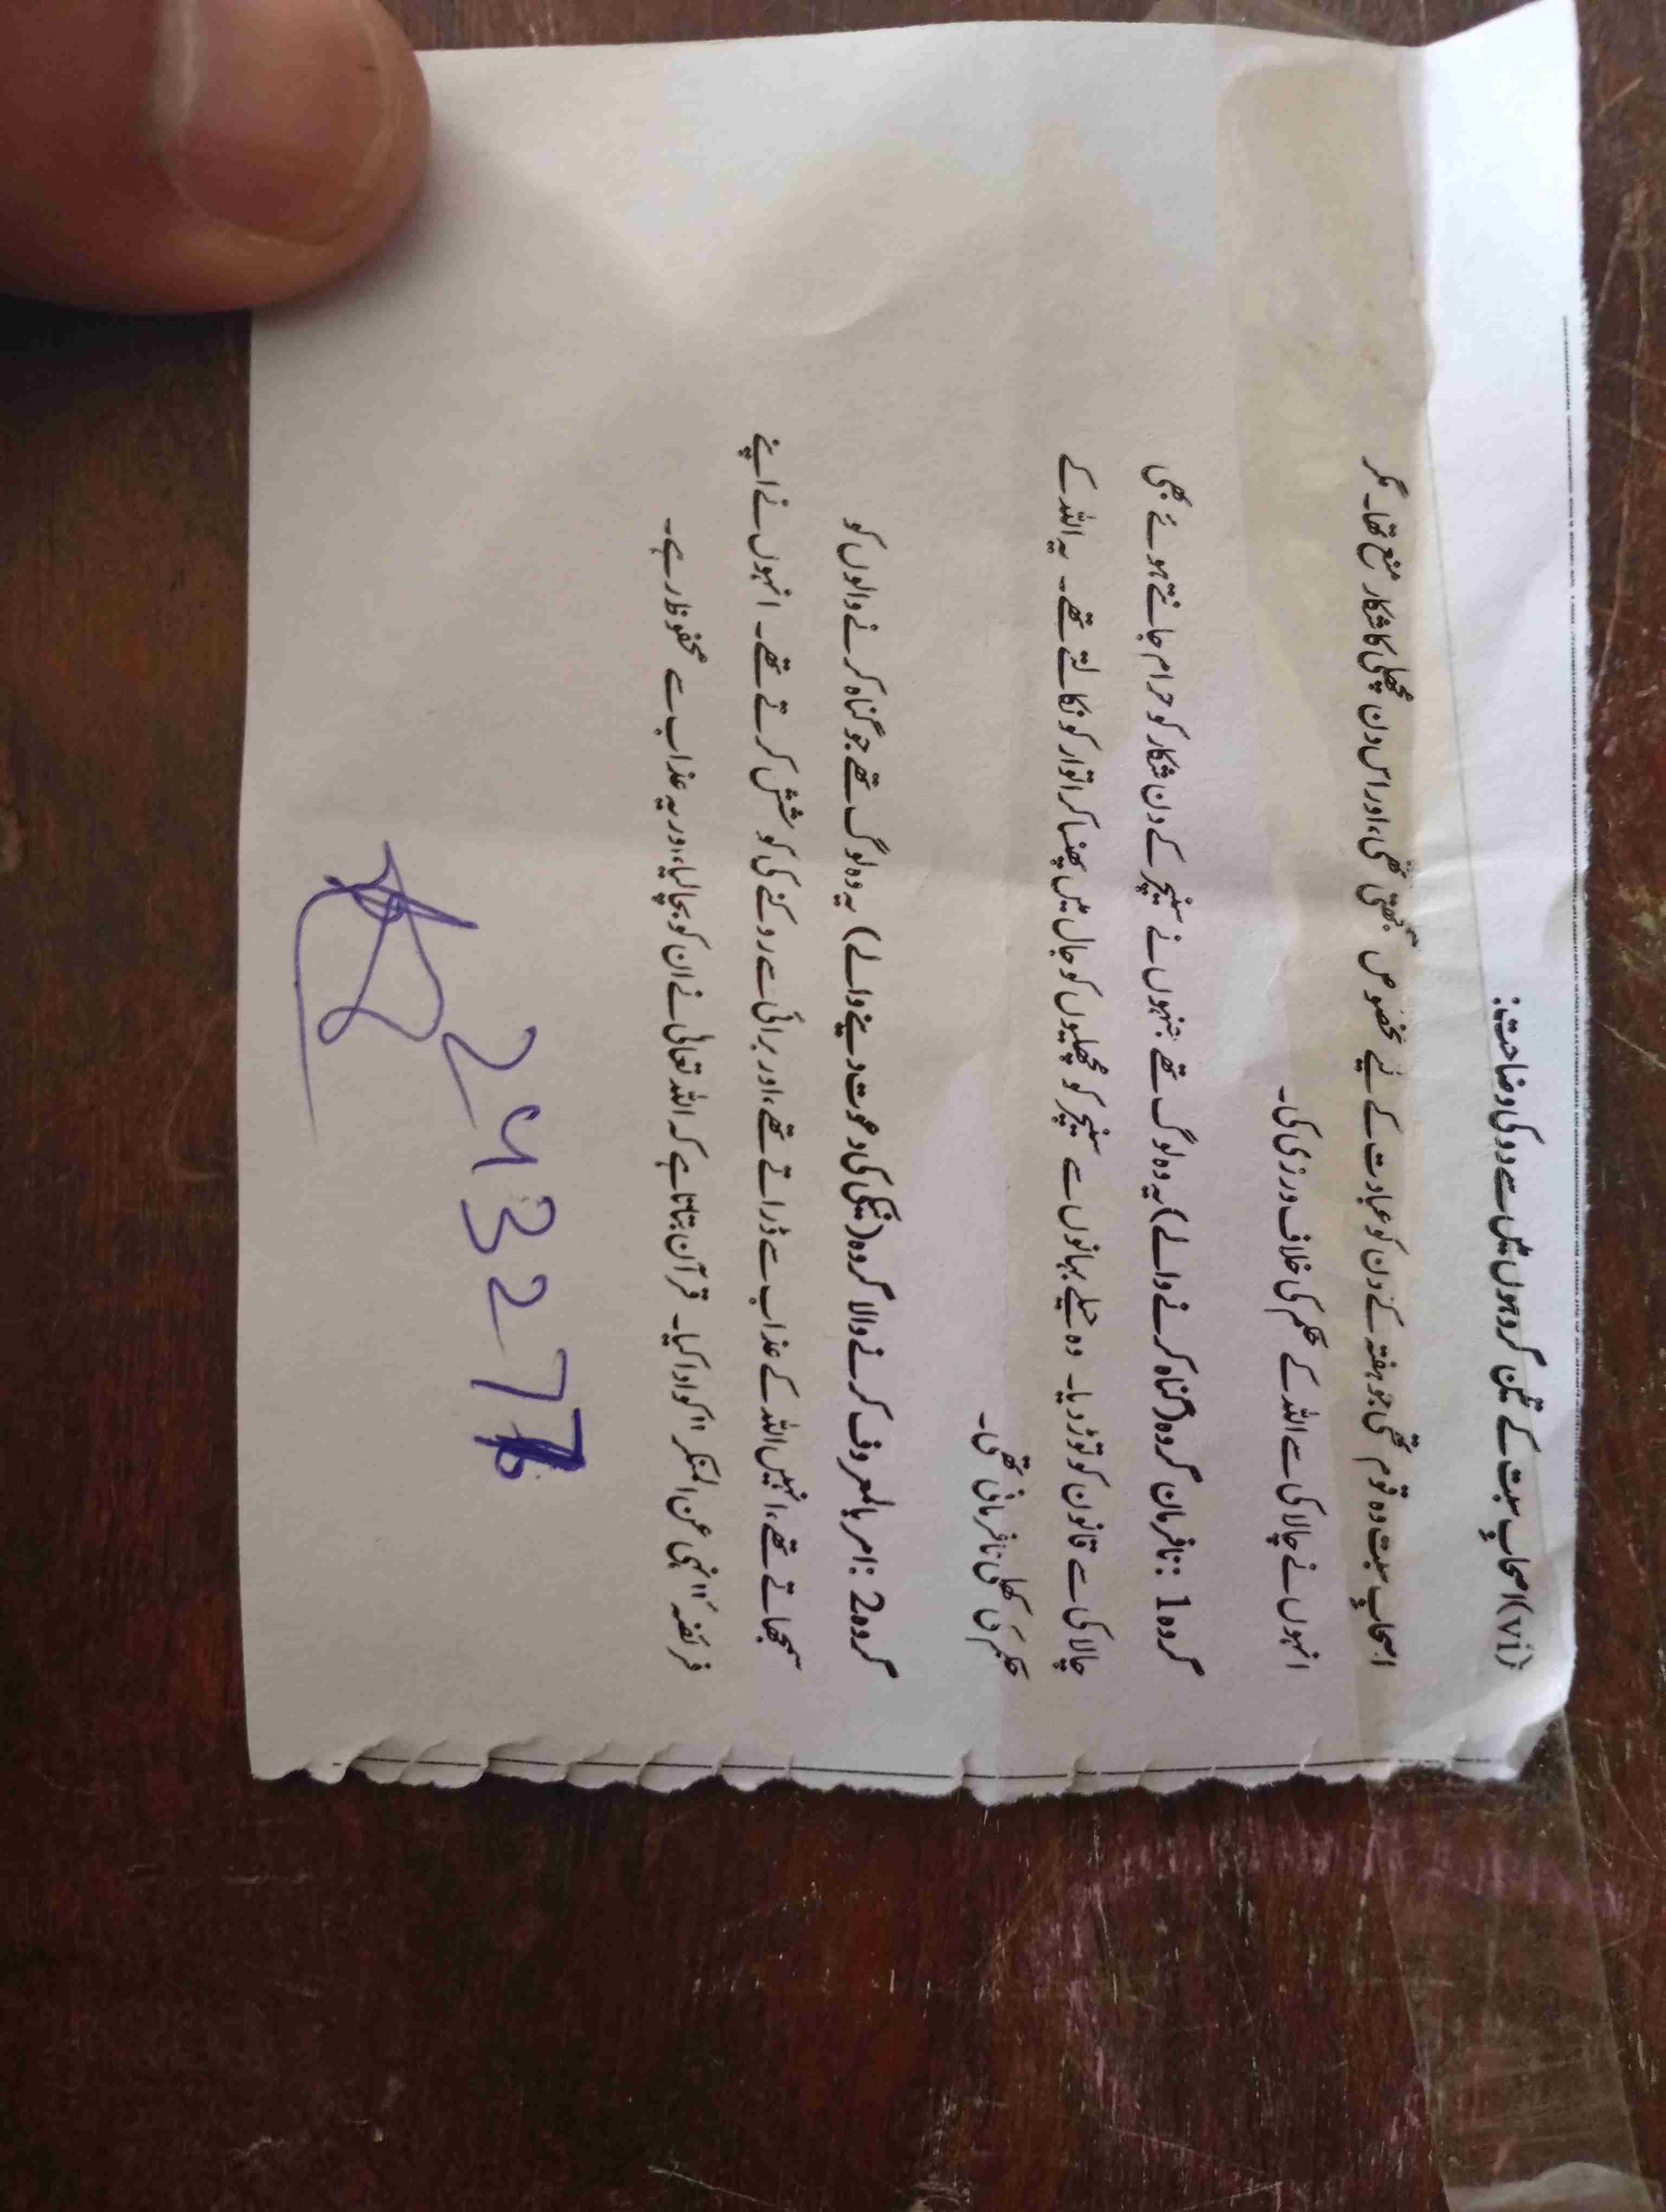 (vi) اصحابِ سبت کے تین گروہوں میں سے دو کی وضاحت:
اصحابِ سبت وہ قوم تھی جو ہفتہ کے دن کو عبادت کے لیے مخصوص سمجھتی تھی، اور اس دن مچھلی کا شکار منع تھا۔ مگر
انہوں نے چالاکی سے اللہ کے حکم کی خلاف ورزی کی۔
گروہ 1: نافرمان گروہ (گناہ کرنے والے) یہ وہ لوگ تھے جنہوں نے سنیچر کے دن شکار کو حرام جانتے ہوئے بھی
چالاکی سے قانون کو توڑ دیا۔ وہ حیلے بہانوں سے سنیچر کو مچھلیوں کو جال میں پھنسا کر اتوار کو نکالتے تھے۔ یہ اللہ کے
حکم کی کھلی نافرمانی تھی۔
گروہ 2: امر بالمعروف کرنے والا گروہ (نیکی کی دعوت دینے والے) یہ وہ لوگ تھے جو گناہ کرنے والوں کو
سمجھاتے تھے، انہیں اللہ کے عذاب سے ڈراتے تھے، اور برائی سے روکنے کی کوشش کرتے تھے۔ انہوں نے اپنے
فریضہ "نہی عن المنکر" کو ادا کیا۔ قرآن بتاتا ہے کہ اللہ تعالیٰ نے ان کو بچا لیا، اور یہ عذاب سے محفوظ رہے۔
243277